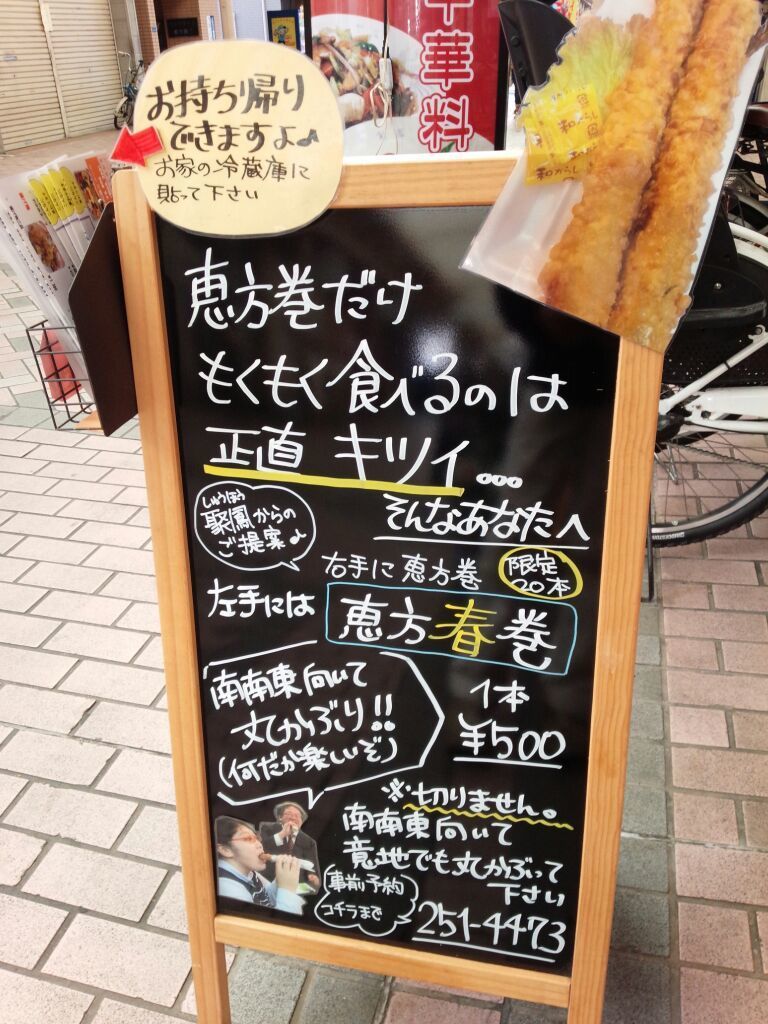 中華料
お持ち帰り
できますよ♪
お家の冷蔵庫に
貼って下さい
和からし
和からし
恵方巻だけ
もくもく食べるのは
正直 キツイ...
そんなあなたへ
しゅうほう
聚鳳からの
ご提案♪
右手に恵方巻
限定
20本
左手には
恵方春巻
1本
¥500
南南東向いて
丸かぶり!!
(何だか楽しいぞ)
※切りません。
南南東向いて
意地でも丸かぶって
下さい
事前予約
コチラまで
251-4473